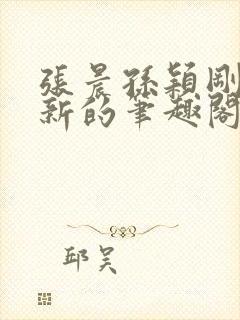 張晨孫穎剛
新的筆趣閣
邱昊